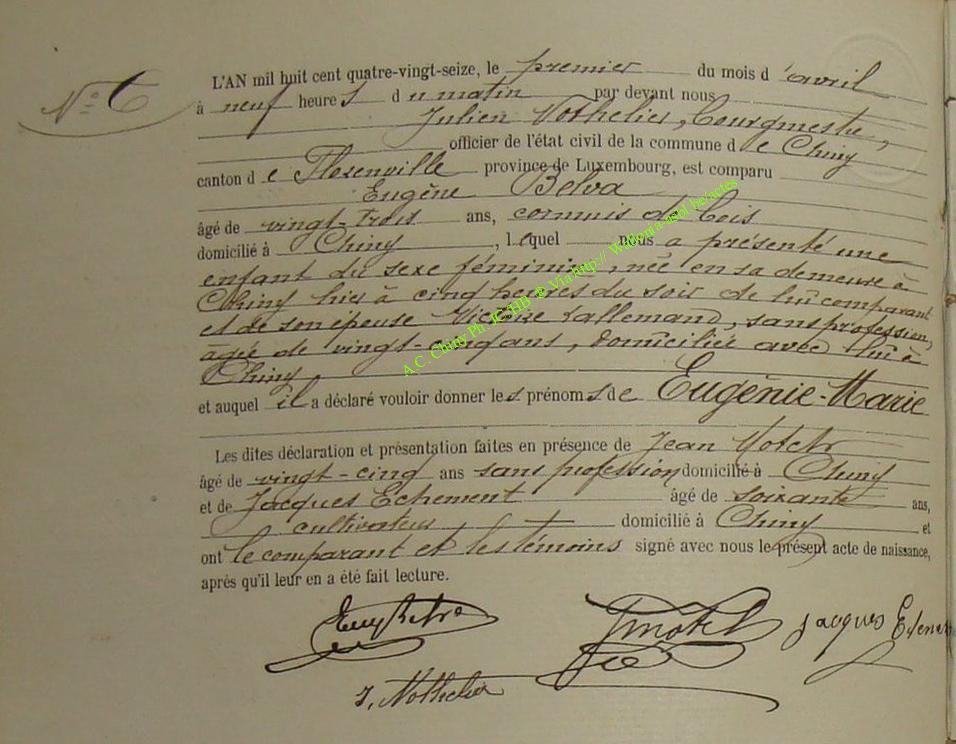 N° 6
L'AN mil huit cent quatre-vingt-seize, le premier du mois d'avril
à neuf heures du matin par devant nous
Julien Nothelier, Bourgmestre,
officier de l'état civil de la commune de Chiny
canton de Florenville province de Luxembourg, est comparu
Eugène Belva
âgé de vingt-trois ans, commis de bois
domicilié à Chiny, lequel nous a présenté une
enfant du sexe féminin, née en sa demeure à
Chiny hier à cinq heures du soir de lui comparant
et de son épouse Victoire Lallemand, sans profession,
âgée de vingt-cinq ans, domiciliée avec lui à
Chiny
et auquel il a déclaré vouloir donner les prénoms de Eugénie-Marie
Les dites déclaration et présentation faites en présence de Jean
âgé de vingt-cinq ans sans profession domicilié à Chiny
et de Jacques Echement âgé de soixante ans,
cultivateur domicilié à Chiny et
ont le comparant et les témoins signé avec nous le présent acte de naissance,
après qu'il leur en a été fait lecture.
Jacques
J. Nothelier
A.C. Chiny Ph. JC HB © Via http://